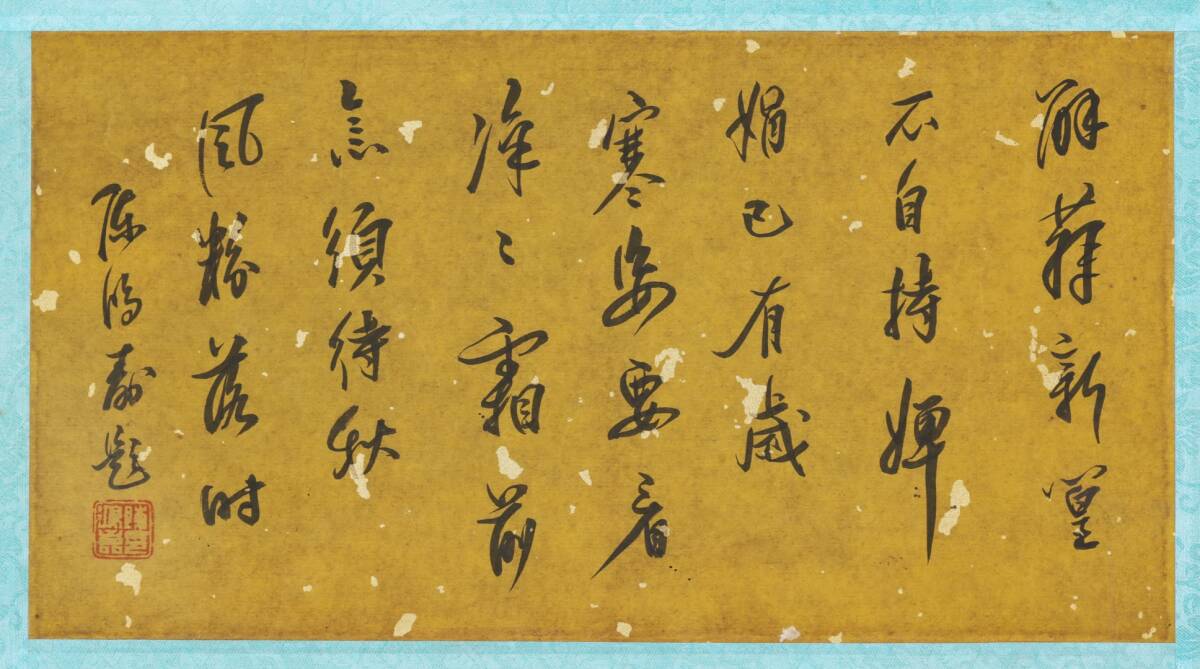 解籜新篁
不自持嬋
娟已有歲
寒姿要看
凜〻霜前
意須待秋
風粉落時
陳鴻壽題